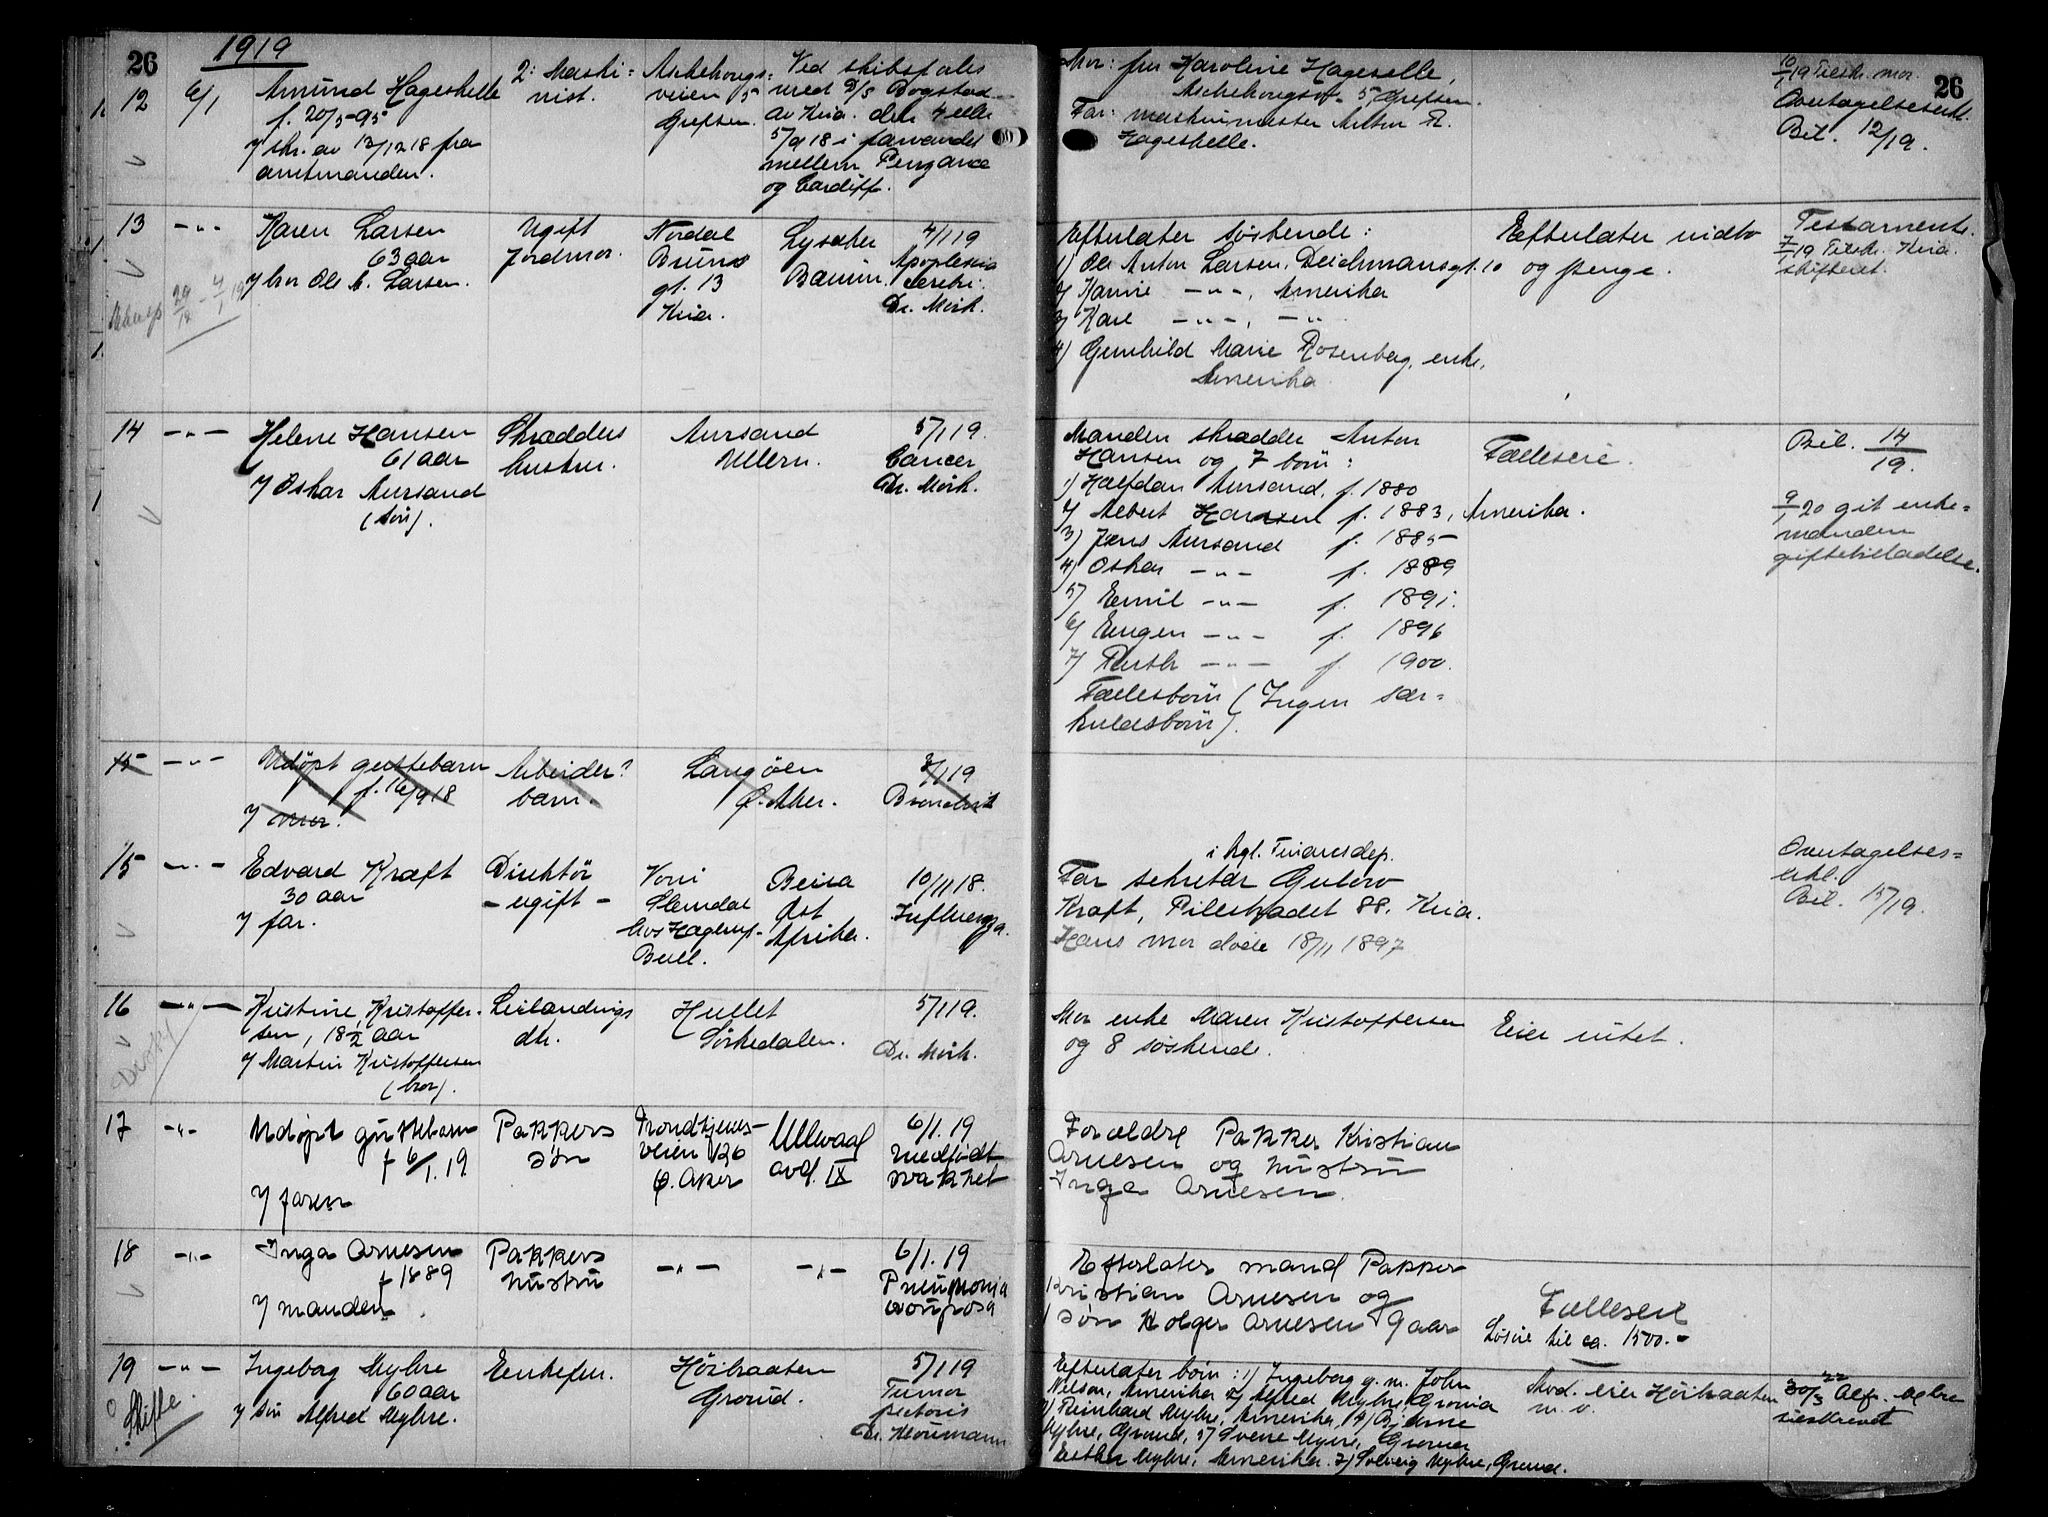 26
1919
12
6/1
Amund Hageskelle
f. 20/5-95
skr. av 13/12 18 fra
amtmanden.
2: Maski=
nist.
Aschehougs=
veien 5
Grefsen.
Ved skibsforlis
med D/S Bogstad
av Kria. den 4 eller
5/9 18 i farvandet
mellem Penzance
og Cardiff.
Mor: fru Karoline Hageskelle,
Aschehougsv. 5, Grefsen.
Far: maskinmester Anton
Hageskelle.
10/1 19 Tilskr. mor.
26
Overtagelseserkl.
Bil. 12/19.
13
-"-
Karen Larsen
63 aar
v/ bror Ole A. Larsen.
29/12 - 4/1 19
Ugift
Jordmor.
Nordal
Bruns
gt. 13
Kria.
Lysaker
Bærum.
4/1 19
Apoplexia
cerebri.
Dr. Mørk.
Efterlater søskende:
1) Ole Anton Larsen, Deichmansgt. 10
2) Hanne -"-, Amerika
3) Karl -"-, -"-
4) Gunhild Marie Rosenberg, enke,
Amerika
Efterlater indbo
og penge.
Testamente.
7/1 19 Tilskr. Kria.
skifteret.
14
-"-
Helene Hansen
61 aar
v/ Oskar Aursand
(søn).
Skrædders
hustru.
Aursand
Ullern.
5/1 19.
Cancer
Dr. Mørk.
Manden skrædder Anton
Hansen og 7 børn:
1) Halfdan Aursand, f. 1880
2) Albert Hansen f. 1883, Amerika.
3) Jens Aursand f. 1885
4) Oskar -"- f. 1889
5) Emil -"- f. 1891.
6) Eugen -"- f. 1896
7) Ruth -"- f. 1900.
Fællesbørn (Ingen sær=
kuldsbørn).
Fælleseie.
Bil. 14/19.
9/1 20 git enke=
manden
giftetilladelse.
15
-"-
Udøpt guttebarn
f. 16/9 18
v/ mor.
Arbeider?
barn.
Langøen
Ø. Aker.
3/1 19
Bronchit
15
-"-
Edvard Kraft
30 aar
v/ far.
Direktør
- ugift -
Voni
Slemdal
hos Hagerup-
Bull.
Beira
Øst
Afrika.
10/11 18.
Influenza.
i kgl. Finansdep.
Far sekretær Gulow
Kraft, Pilestrædet 88, Kria.
Hans mor døde 18/11 1897
Overtagelses=
erkl.
Bil. 15/19.
16
-"-
Kristine Kristoffer-
sen, 18 1/2 aar
v/ Martin Kristoffersen
(bror).
Leilændings
dtr.
Hullet
Sørkedalen.
5/1 19.
Dr. Mørk.
Mor enke Maren Kristoffersen
og 8 søskende.
Eier intet.
17
-"-
Udøpt guttebarn
f 6/1. 19
v/ faren
Pakkers
søn
Trondhjems-
veien 126
Ø. Aker
Ullevaal
avd. IX
6/1. 19
medfødt
svakhet
Forældre Pakker Kristian
Arnesen og hustru
Inga Arnesen.
18
-"-
Inga Arnesen
f 1889
v/ manden.
Pakkers
hustru
-"-
-"-
6/1. 19
Pneumonia
crouposa
Efterlater mand Pakker
Kristian Arnesen og
1 søn Holger Arnesen 9 aar
Fælleseie
Løsøre til ca. 1500.-
19
-"-
Ingeborg Myhre
60 aar
v/ søn Alfred Myhre.
Skifte.
Enkefru.
Høibraaten
Grorud.
5/1 19
Tumor
pectoris
Dr. Kloumann
Efterlater børn: 1) Ingeborg g. m. John
Nilson, Amerika 2) Alfred Myhre, Grorud
3) Reinhard Myhre, Amerika 4) Bjarne
Myhre, Grorud, 5) Sverre Myhre, Grorud
Esther Myhre, Amerika. 7) Solveig Myhre, Grorud.
Avd. eier Høibraaten
m. v.
30/3 22 Alf. Myhre
tilskrevet